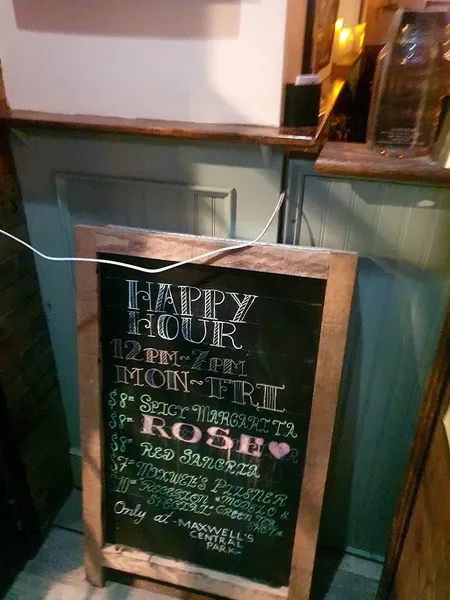 HAPPY
HOUR
12PM~7PM
MON~FRI
$8= SPICY MARGARITA
$8= ROSE
$8= RED SANGRIA
$7= MAXWELL'S PILSNER
MODELO &
SPECIAL GREEN TEA
Only at -MAXWELL'S
CENTRAL
PARK-